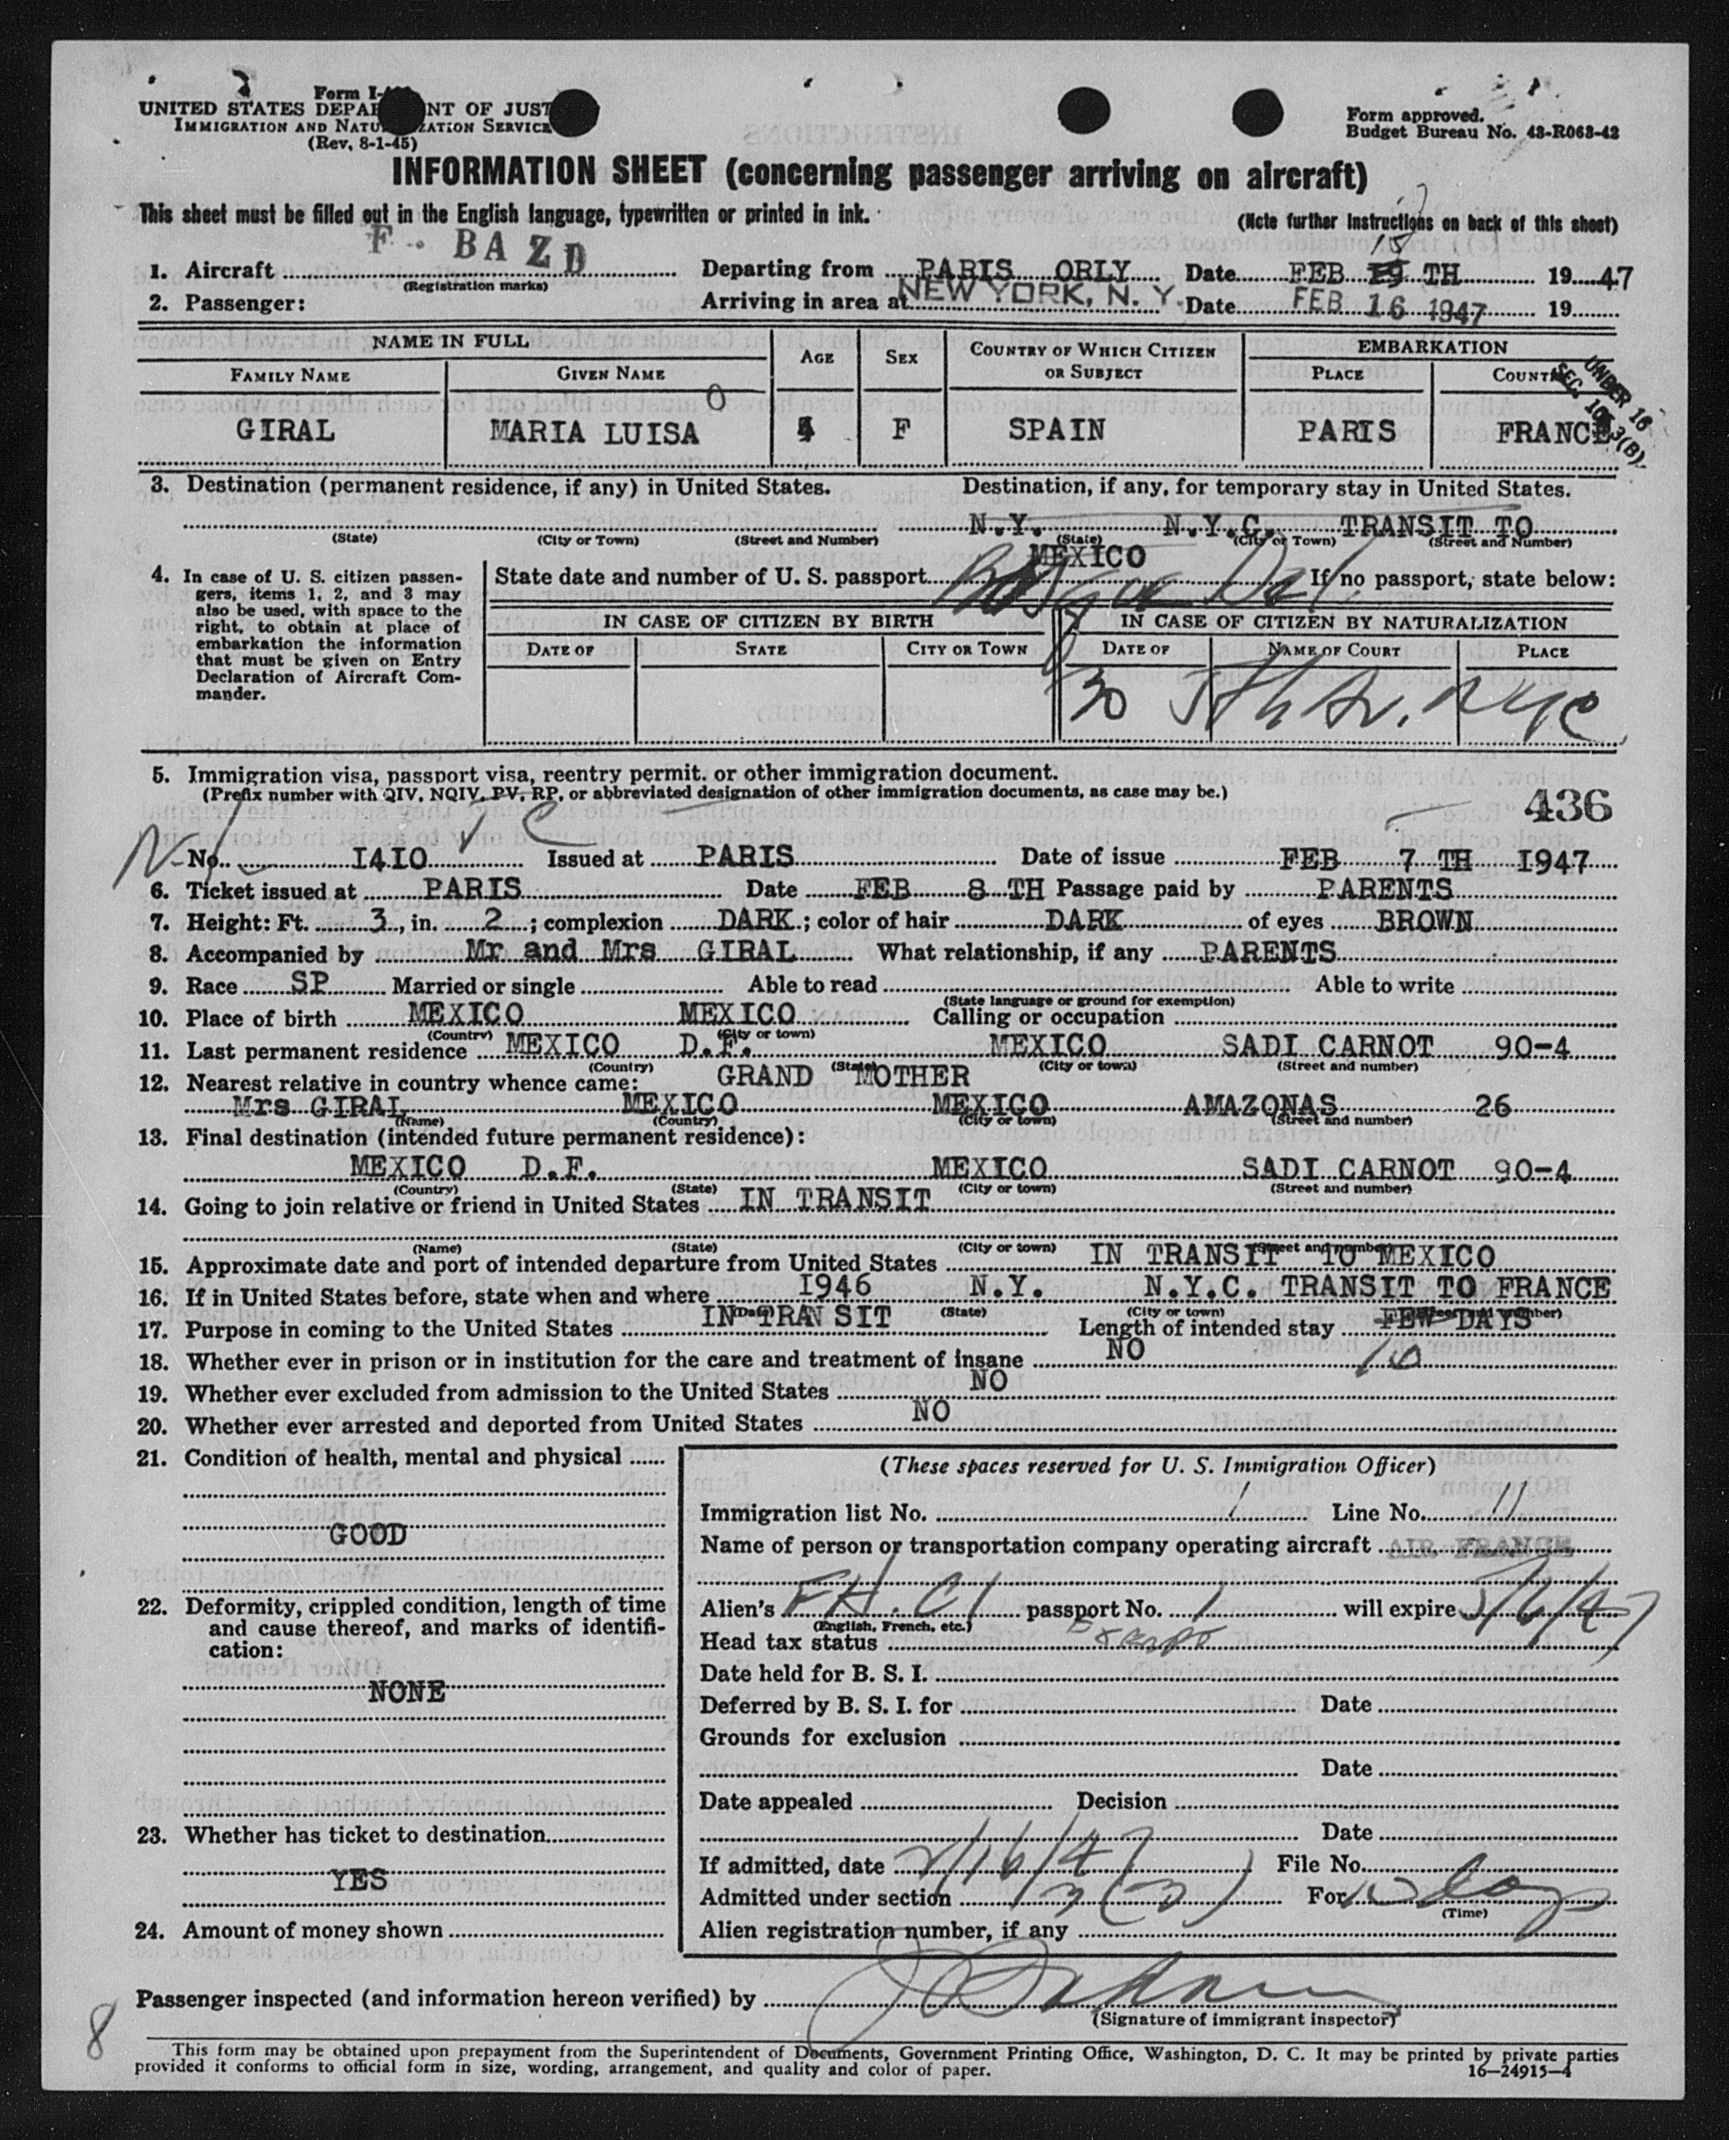 Form I-
UNITED STATES DEPAR NT OF JUST
IMMIGRATION AND NATU ZATION SERVICE
(Rev. 8-1-45)
Form approved.
Budget Bureau No. 43-R063-42
INFORMATION SHEET (concerning passenger arriving on aircraft)
This sheet must be filled out in the English language, typewritten or printed in ink.
(Note further instructions on back of this sheet)
F. BAZD
15
1. Aircraft Departing from PARIS ORLY Date FEB TH 1947
(Registration marks)
2. Passenger: Arriving in area at NEW YORK, N. Y. Date FEB 16 1947 19
NAME IN FULL AGE SEX COUNTRY OF WHICH CITIZEN OR SUBJECT EMBARKATION
FAMILY NAME GIVEN NAME PLACE COUNTRY
UNDER 16
SEC. 3(B)
O
GIRAL MARIA LUISA 4 F SPAIN PARIS FRANCE
3. Destination (permanent residence, if any) in United States. Destination, if any, for temporary stay in United States.
N.Y. N.Y.C. TRANSIT TO
(State) (City or Town) (Street and Number) (State) (City or Town) (Street and Number)
MEXICO
4. In case of U. S. citizen passengers, items 1, 2, and 3 may also be used, with space to the right, to obtain at place of embarkation the information that must be given on Entry Declaration of Aircraft Commander.
State date and number of U. S. passport If no passport, state below:
IN CASE OF CITIZEN BY BIRTH IN CASE OF CITIZEN BY NATURALIZATION
DATE OF STATE CITY OR TOWN DATE OF NAME OF COURT PLACE
30 5th Av. NYC
5. Immigration visa, passport visa, reentry permit, or other immigration document.
(Prefix number with QIV, NQIV, PV, RP, or abbreviated designation of other immigration documents, as case may be.)
436
No. I4IO Issued at PARIS Date of issue FEB 7 TH I947
6. Ticket issued at PARIS Date FEB 8 TH Passage paid by PARENTS
7. Height: Ft. 3, in. 2; complexion DARK; color of hair DARK of eyes BROWN
8. Accompanied by Mr and Mrs GIRAL What relationship, if any PARENTS
9. Race SP Married or single Able to read Able to write
(State language or ground for exemption)
10. Place of birth MEXICO MEXICO Calling or occupation
(Country) (City or town)
11. Last permanent residence MEXICO D.F. MEXICO SADI CARNOT 90-4
(Country) (State) (City or town) (Street and number)
12. Nearest relative in country whence came: GRAND MOTHER
Mrs GIRAL MEXICO MEXICO AMAZONAS 26
(Name) (Country) (City or town) (Street and number)
13. Final destination (intended future permanent residence):
MEXICO D.F. MEXICO SADI CARNOT 90-4
(Country) (State) (City or town) (Street and number)
14. Going to join relative or friend in United States IN TRANSIT
(Name) (State) (City or town) (Street and number)
15. Approximate date and port of intended departure from United States IN TRANSIT TO MEXICO
16. If in United States before, state when and where I946 N.Y. N.Y.C. TRANSIT TO FRANCE
(Date) (State) (City or town) (Street and number)
17. Purpose in coming to the United States IN TRAN SIT Length of intended stay FEW DAYS
10
18. Whether ever in prison or in institution for the care and treatment of insane NO
19. Whether ever excluded from admission to the United States NO
20. Whether ever arrested and deported from United States NO
21. Condition of health, mental and physical
GOOD
22. Deformity, crippled condition, length of time and cause thereof, and marks of identification:
NONE
23. Whether has ticket to destination
YES
24. Amount of money shown
(These spaces reserved for U. S. Immigration Officer)
Immigration list No. 1 Line No. 11
Name of person or transportation company operating aircraft AIR FRANCE
Alien's passport No. 1 will expire
(English, French, etc.)
Head tax status Exempt
Date held for B. S. I.
Deferred by B. S. I. for Date
Grounds for exclusion
Date
Date appealed Decision
Date
If admitted, date 2/16/47 File No.
Admitted under section 3(3) For 10 days
(Time)
Alien registration number, if any
Passenger inspected (and information hereon verified) by
(Signature of immigrant inspector)
8
This form may be obtained upon prepayment from the Superintendent of Documents, Government Printing Office, Washington, D. C. It may be printed by private parties
provided it conforms to official form in size, wording, arrangement, and quality and color of paper. 16—24915-4